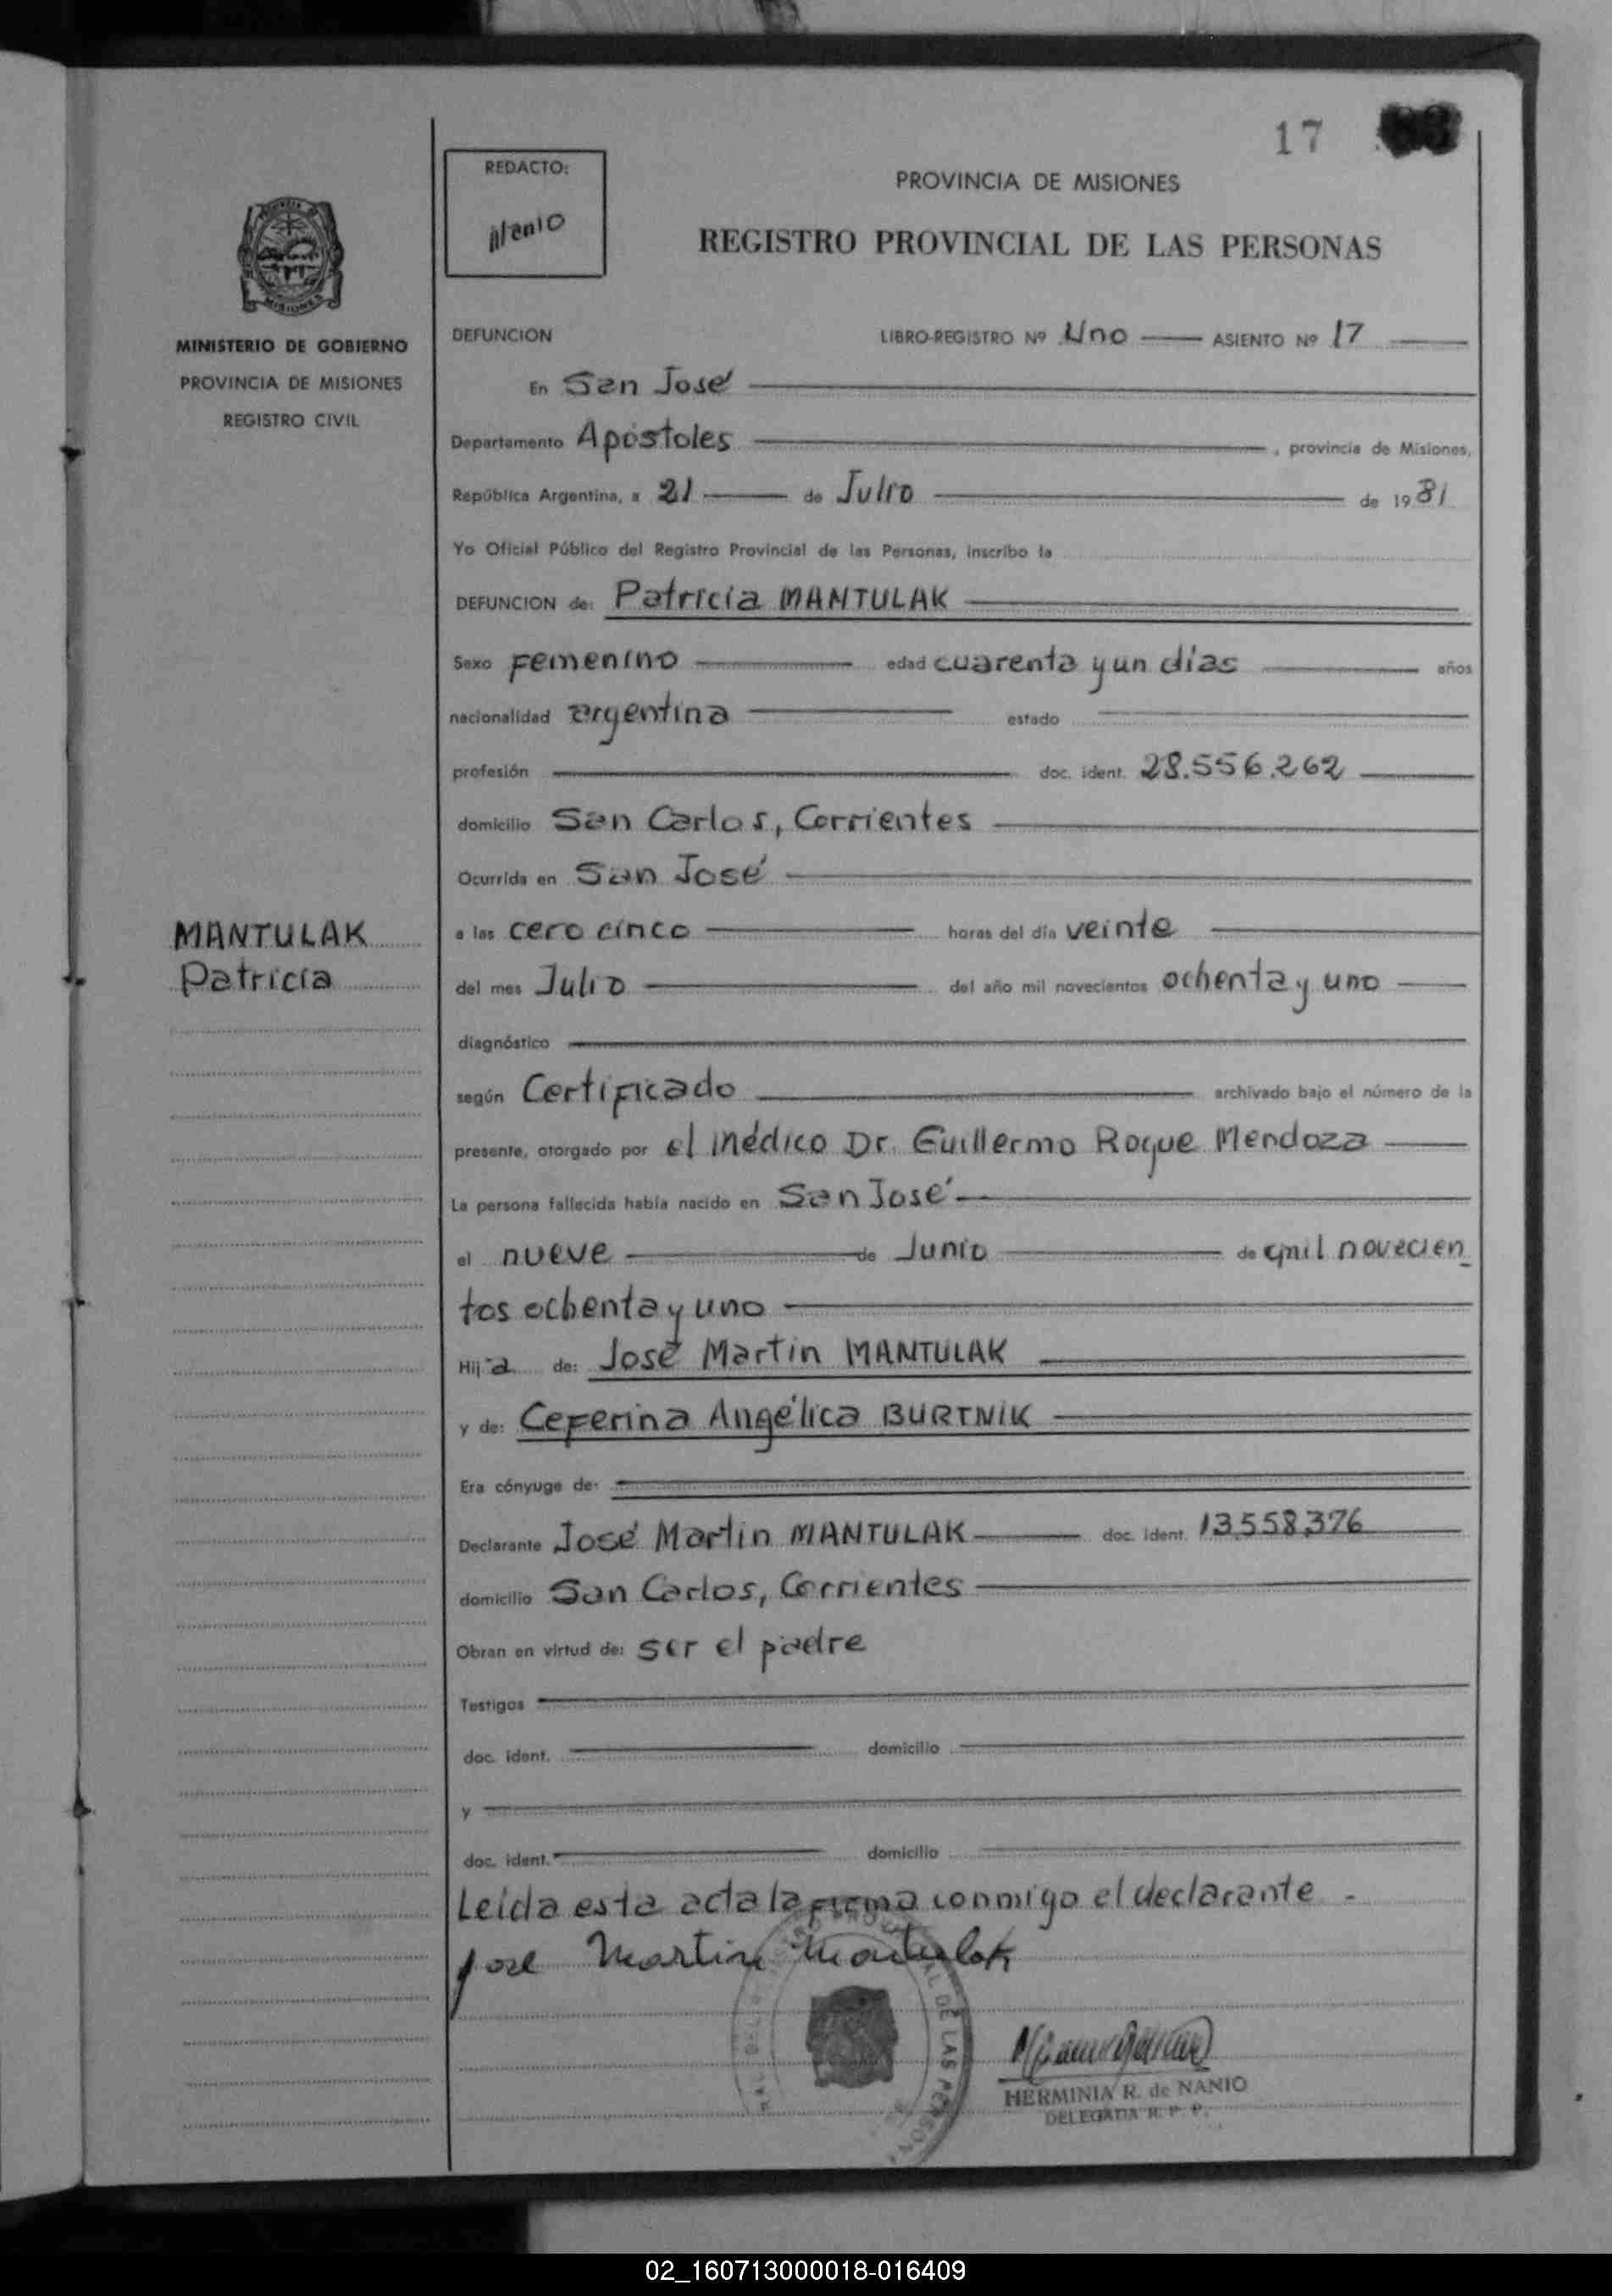 17
REDACTO:
Nanio
PROVINCIA DE MISIONES
REGISTRO PROVINCIAL DE LAS PERSONAS
MINISTERIO DE GOBIERNO
PROVINCIA DE MISIONES
REGISTRO CIVIL
MANTULAK
Patricia
DEFUNCION LIBRO-REGISTRO Nº Uno ASIENTO Nº 17
En San José
Departamento Apóstoles, provincia de Misiones,
República Argentina, a 21 de Julio de 1981
Yo Oficial Público del Registro Provincial de las Personas, inscribo la
DEFUNCION de: Patricia MANTULAK
Sexo Femenino edad cuarenta y un días años
nacionalidad argentina estado
profesión doc. ident. 28.556.262
domicilio San Carlos, Corrientes
Ocurrida en San José
a las cero cinco horas del día veinte
del mes Julio del año mil novecientos ochenta y uno
diagnóstico
según Certificado archivado bajo el número de la
presente, otorgado por el médico Dr. Guillermo Roque Mendoza
La persona fallecida había nacido en San José
el nueve de Junio de mil novecien
tos ochenta y uno
Hija de: José Martin MANTULAK
y de: Ceferina Angélica BURTNIK
Era cónyuge de:
Declarante José Martin MANTULAK doc. ident. 13.558.376
domicilio San Carlos, Corrientes
Obran en virtud de: ser el padre
Testigos
doc. ident. domicilio
y
doc. ident. domicilio
Leida esta acta la firma conmigo el declarante.
Jose Martin Mantulak
HERMINIA R. de NANIO
DELEGADA R. P. P.
02_160713000018-016409